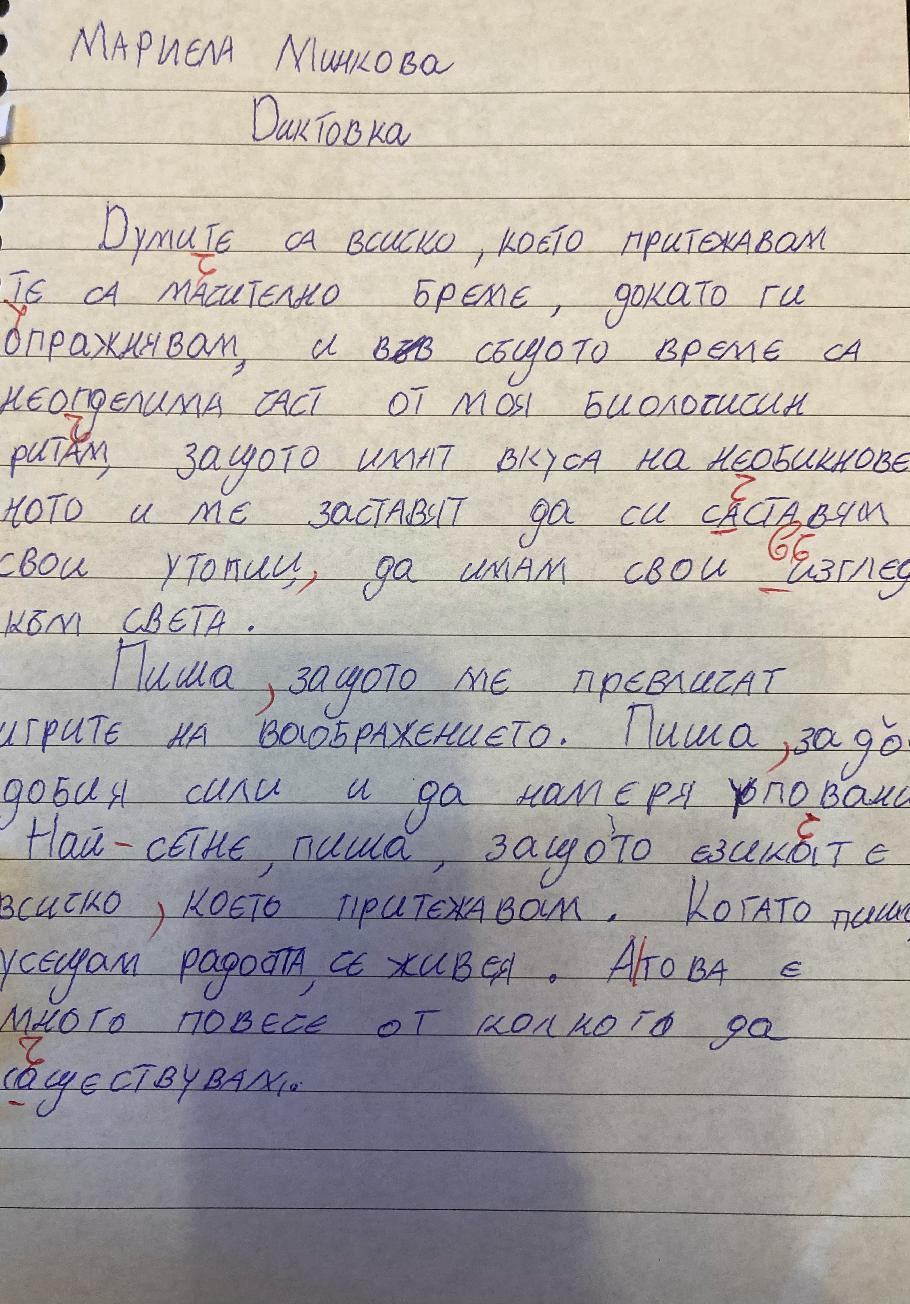 Мариела Минкова
Диктовка
Думите са всиско, което притежавам
Те са масително бреме, докато ги
опражнявам, и във същото време са
неопделима част от моя биологисин
ритам, защото имат вкуса на необикнове
ното и ме заставят да си саставям
свои утопии, да имам свои изглед
към света.
Пиша, защото ме превличат
игрите на воображението. Пиша, за до-
добия сили и да намеря упован
Най-сетне, пиша, защото езикат е
всиско, което притежавам. Когато пиш
усещам радоста, се живея. А това е
много повесе от колкото да
саществувам.